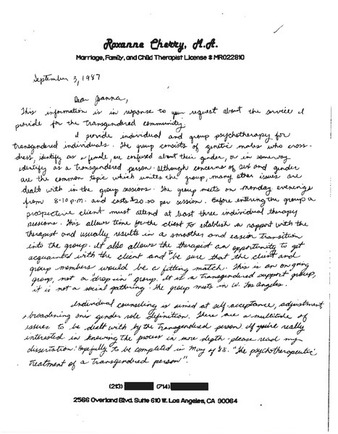 Roxanne Cherry, M.A.
Marriage, Family, and Child Therapist License # MR022810
September 3, 1987
Dear Joanna,
This information is in response to your request about the service I
provide for the transgendered community.
I provide individual and group psychotherapy for
transgendered individuals. The group consists of genetic males who cross-
dress, identify as a female, are confused about their gender, or in some way
identify as a transgendered person. Although concerns of sex and gender
are the common topic which unites the group, many other issues are
dealt with in the group sessions. The group meets on Monday evenings
from 8-10 p.m. and costs $20.00 per session. Before entering the group a
prospective client must attend at least three individual therapy
sessions. This allows time for the client to establish a rapport with the
therapist and usually results in a smoother and easier transition
into the group. It also allows the therapist an opportunity to get
acquainted with the client and be sure that the client and
group members would be a fitting match. This is an ongoing
group, not a drop-in group. It is a transgendered support group,
it is not a social gathering. The group meets in W. Los Angeles.
Individual counseling is aimed at self-acceptance, adjustment
broadening one's gender role definition. There are a multitude of
issues to be dealt with by the transgendered person. If you're really
interested in knowing the process in more depth please read my
dissertation. Hopefully to be completed in May of 88. "The psychotherapeutic
treatment of a transgendered person".
(213) (714)
2566 Overland Blvd, Suite 610 W. Los Angeles, CA 90064